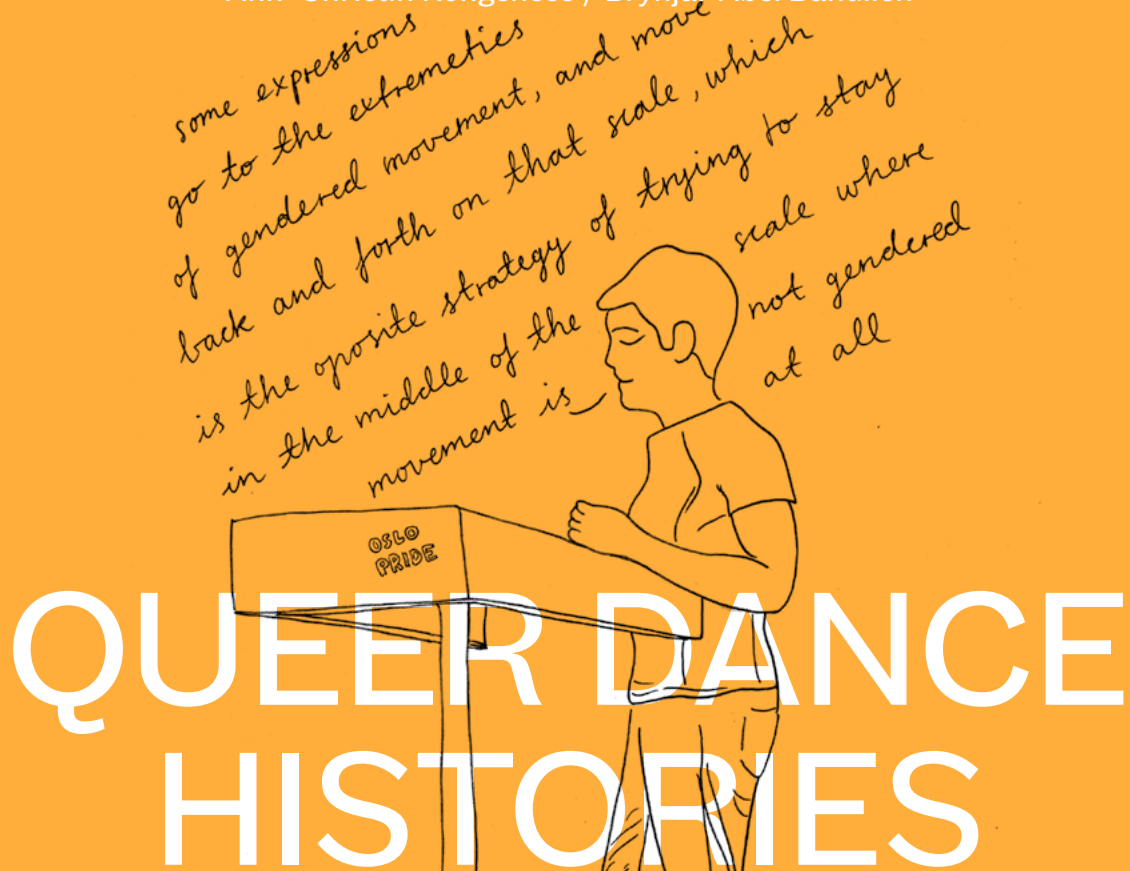 some expressions
go to the extremeties
of gendered movement, and move
back and forth on that scale, which
is the oposite strategy of trying to stay
in the middle of the scale where
movement is not gendered
at all
OSLO
PRIDE
QUEER DANCE
HISTORIES